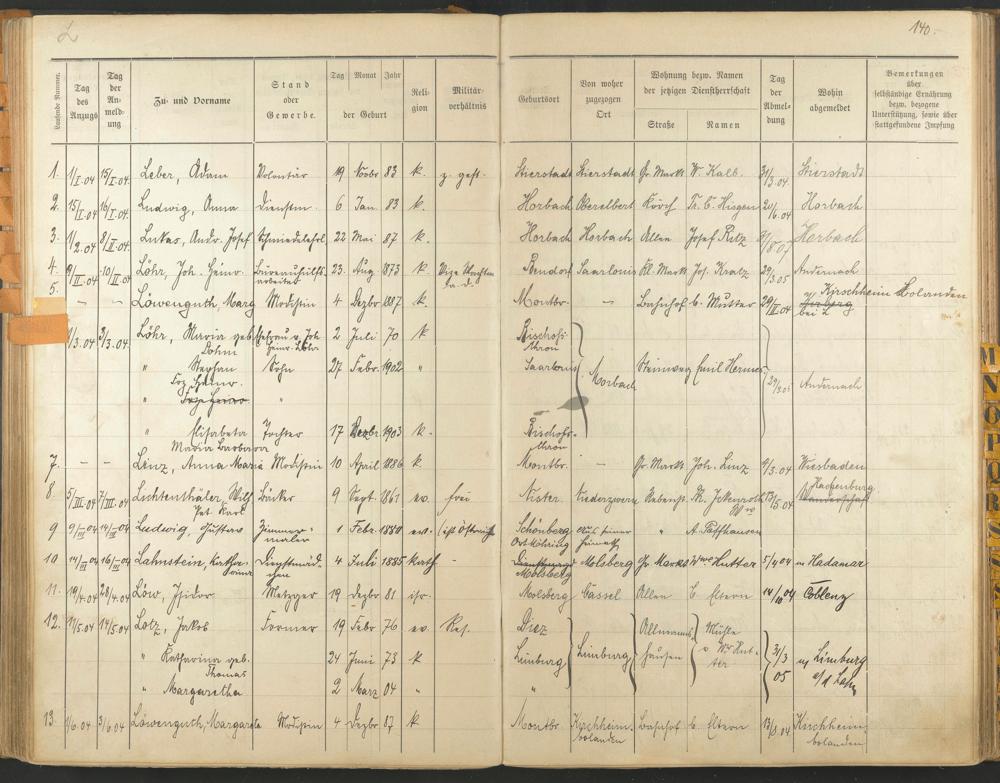 L
140.
Laufende Nummer.
Tag des Anzugs
Tag der An- meld- ung
Zu- und Vorname
Stand oder Gewerbe.
Tag Monat Jahr der Geburt
Reli- gion
Militär- verhältnis
Geburtsort
Von woher zugezogen Ort
Wohnung bezw. Namen der jetzigen Dienstherrschaft
Straße
Namen
Tag der Abmel- dung
Wohin abgemeldet
Bemerkungen über selbständige Ernährung bezw. bezogene Unterstützung, sowie über stattgefundene Impfung
1. 1/I.04 15/I.04 Leber, Adam Volontär 19 Novbr 83 k. Stierstadt Stierstadt Gr. Markt W. Kalb. 31/3.04. Stierstadt
2. 15/I.04 16/I.04 Ludwig, Anna Dienstm. 6 Jan. 83 k. Horbach Oberelbert Horbach
3. 1/2.04 8/II.04 Lukas, Andr. Josef Schmiedelehrl. 22 Mai 87 k. Horbach Horbach Allee Josef Ritz Horbach
4. 9/II.04 10/II.04 Löhr, Joh. Heinr. Büreauhilfs- arbeiter 23. Aug 1873 k. Bendorf Saarlouis Kl. Markt Jos. Kratz 29/3.05 Andernach
5. – – Löwenguth, Marg Modistin 4 Dezbr 1887 k. Montbr. – Bahnhof b. Mutter 29/II.04 Kirchheim Bolanden
1/3.04 3/3.04 Löhr, Maria geb. Ehefrau v. Joh. Heinr. Löhr 2 Juli 70 k Bischofs-
Dohm thron
" Stephan Sohn 27 Febr. 1902 " Saarlouis Morbach Steinweg Emil Hermes 29/3.05 Andernach
Foz. Heinr.
" "
" Elisabeta Tochter 17 Dezbr. 1903 k. Bischofs-
Maria Barbara thron
7. – – Linz, Anna Maria Modistin 10 April 1886 k. Montbr. – Gr. Markt Joh. Linz 9/3.04 Wiesbaden
8. 5/III.04 7/III.04 Lichtenthäler, Wilh. 9 Sept. 1861 ev. frei Nister. Niederzwern Rebenst. 13/5.04 Hachenburg
Pet. Karl Wanderschaft
9 9/III.04 14/III.04 Ludwig, Gustav Zimmer- maler 1 Febr. 1880 ev. Schönberg "
Heimath
10 14/III.04 16/III.04 Lahnstein, Kathar- Dienstmäd- 4 Juli 1885 kath – Molsberg Molsberg Gr. Markt Wwe Hutter 5/4 04 n Hadamar
rina chen
11. 19/4.04 28/4.04 Löw, Isidor Metzger 19 Dezbr 81 isr. Molsberg Cassel Allee b. Eltern 14/10 04 Coblenz
12. 11/5.04 14/5.04 Lotz, Jakob Former 19 Febr 76 ev. Res. Diez
" Katharina geb. 24 Juni 73 k Limburg Limburg Allmanns- hausen Mühle v. Ww Hut- ter 31/3 05 n Limburg
Thomas a/d Lahn
" Margaretha 2 März 04 " "
13. 1/6.04 3/6.04 Löwenguth, Margareta Modistin 4 Dezbr 87 k Montbr. Kirchheim- bolanden Bahnhof b Eltern 13/8.04 Kirchheim-
bolanden
M
N
O
P
Q
R
S